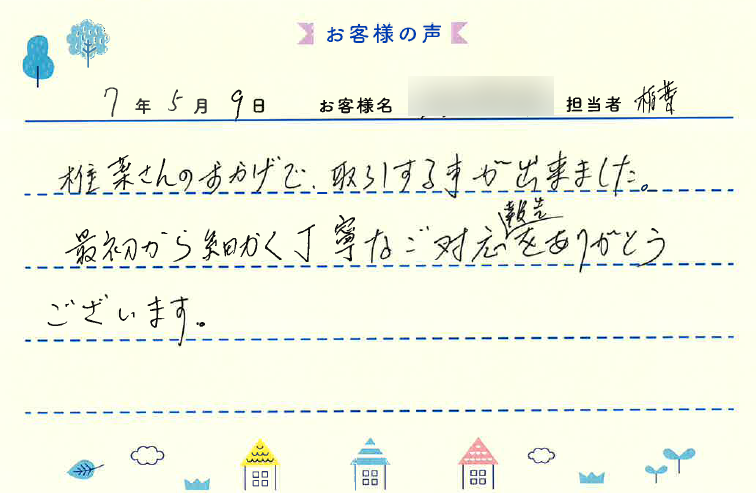 お客様の声
7年5月9日 お客様名 担当者 稲葉
椎葉さんのおかげで、取引する事が出来ました。
最初から細かく丁寧なご対応報告をありがとう
ございます。